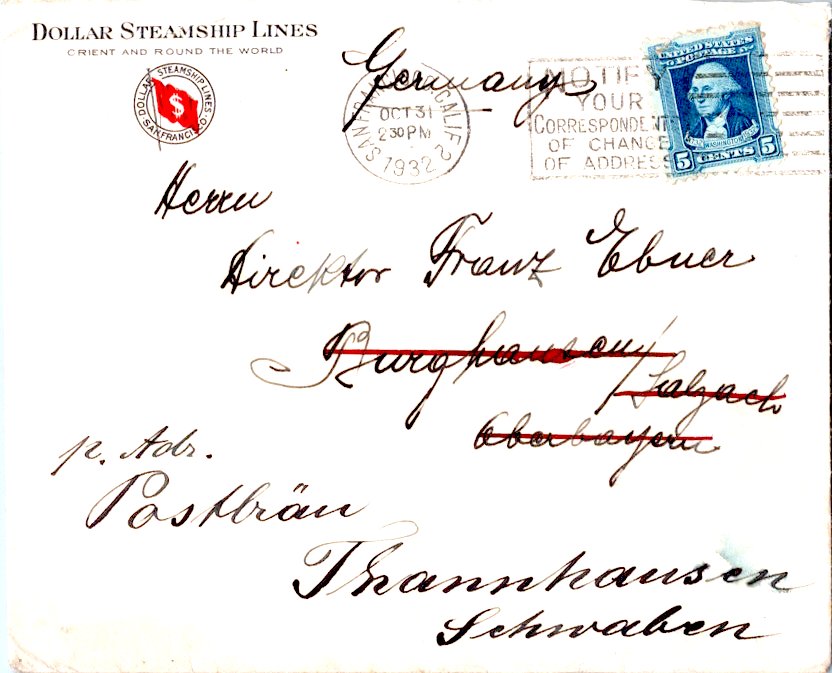 DOLLAR STEAMSHIP LINES
ORIENT AND ROUND THE WORLD
DOLLAR STEAMSHIP LINES
$
SAN FRANCISCO
Germany
SAN FRANCISCO, CALIF. 2
OCT 31
2 30 PM
1932
NOTIFY
YOUR
CORRESPONDENTS
OF CHANGE
OF ADDRESS
UNITED STATES
POSTAGE
WASHINGTON
5 CENTS 5
Herrn
Direktor Franz Ebner
Burghausen/Salzach
Oberbayern
p. Adr.
Postbräu
Thannhausen
Schwaben